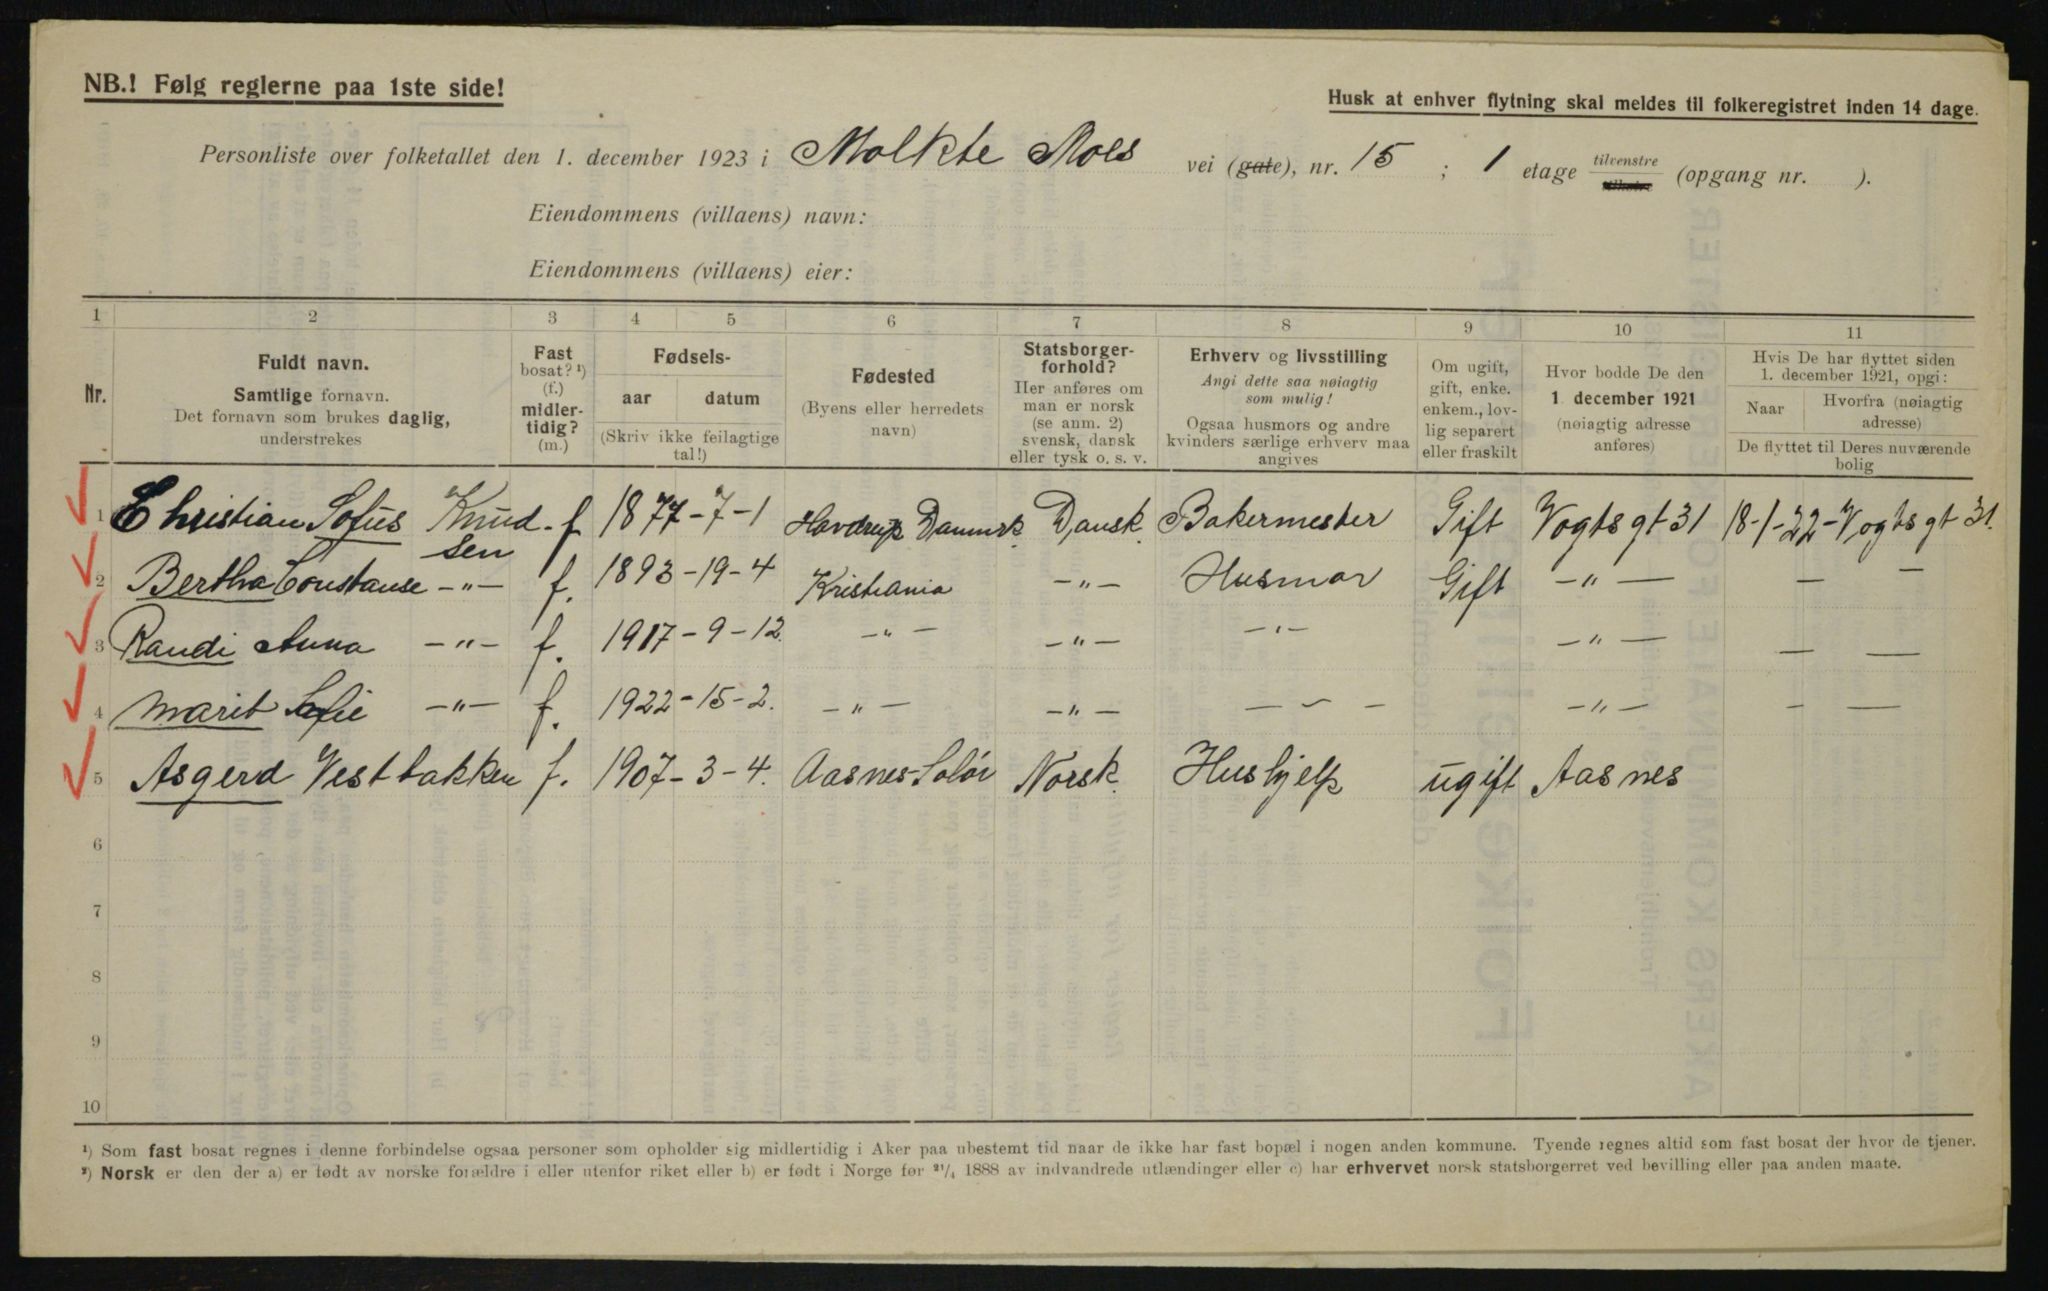 NB.! Følg reglerne paa 1ste side!
Husk at enhver flytning skal meldes til folkeregistret inden 14 dage.
Personliste over folketallet den 1. december 1923 i Molkte Moes vei (gate), nr. 15 ; 1 etage tilvenstre (opgang nr. ).
Eiendommens (villaens) navn:
Eiendommens (villaens) eier:
1 2 3 4 5 6 7 8 9 10 11
Nr.
Fuldt navn.
Samtlige fornavn.
Det fornavn som brukes daglig,
understrekes
Fast
bosat? ¹)
(f.)
midler-
tidig?
(m.)
Fødsels-
aar datum
(Skriv ikke feilagtige
tal!)
Fødested
(Byens eller herredets
navn)
Statsborger-
forhold?
Her anføres om
man er norsk
(se anm. 2)
svensk, dansk
eller tysk o. s. v.
Erhverv og livsstilling
Angi dette saa nøiagtig
som mulig!
Ogsaa husmors og andre
kvinders særlige erhverv maa
angives
Om ugift,
gift, enke.
enkem., lov-
lig separert
eller fraskilt
Hvor bodde De den
1. december 1921
(nøiagtig adresse
anføres)
Hvis De har flyttet siden
1. december 1921, opgi:
Naar Hvorfra (nøiagtig
adresse)
De flyttet til Deres nuværende
bolig
1 Christian Sofus Knud- f 1877-7-1 Havdrup Danmrk. Dansk. Bakermester Gift Vogts gt 31 18-1-22- Vogts gt 31.
sen
2 Bertha Constanse -"- f. 1893-19-4 Kristiania -"- Husmor Gift -"- — —
3 Randi Anna -"- f. 1917-9-12. -"- -"- -"- -"- — —
4 Marit Sofie -"- f. 1922-15-2. -"- -"- — - - -"- — —
5 Asgerd Vestbakken f. 1907-3-4. Aasnes-Solør Norsk. Hushjelp ugift Aasnes
6
7
8
9
10
¹) Som fast bosat regnes i denne forbindelse ogsaa personer som opholder sig midlertidig i Aker paa ubestemt tid naar de ikke har fast bopæl i nogen anden kommune. Tyende regnes altid som fast bosat der hvor de tjener.
²) Norsk er den der a) er født av norske forældre i eller utenfor riket eller b) er født i Norge før ²¹/₄ 1888 av indvandrede utlændinger eller c) har erhvervet norsk statsborgerret ved bevilling eller paa anden maate.